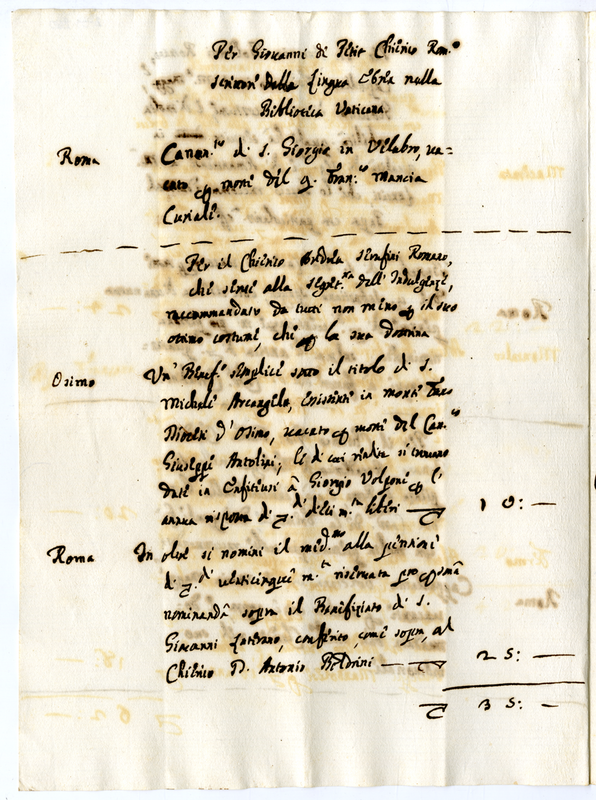 Per Giovanni di Petit Chierico Rom.º
scrittore della Lingua Ebrea nella
Biblioteca Vaticana.
Roma
Canon.to di S. Giorgio in Velabro, va=
cato per morte del q. Fran.co Mancia
Curiale.
Per il Chierico Andrea Serafini Romano,
che serve alla Segret.ria dell'Indulgenze,
raccommandato da tutti non meno per il suo
ottimo costume, che per la sua dottrina
Osimo
Un' Benef.º semplice sotto il titolo di S.
Michele Arcangelo, esistente in monte
Diocesi d'Osimo, vacato per morte del Can.co
Giuseppe Antolini, le di cui rendite si trovano
date in Enfiteusi à Giorgio Volponi per l'
annua risposta di dieci m.ta liberi 10: —
Roma
In oltre si nomini il med.mo alla pensione
di venticinque m.ta riservata pro persona
nominanda sopra il Benefiziato di S.
Giovanni Laterano, conferito, come sopra, al
Chierico D. Antonio Beldrini — 25: —
35: —